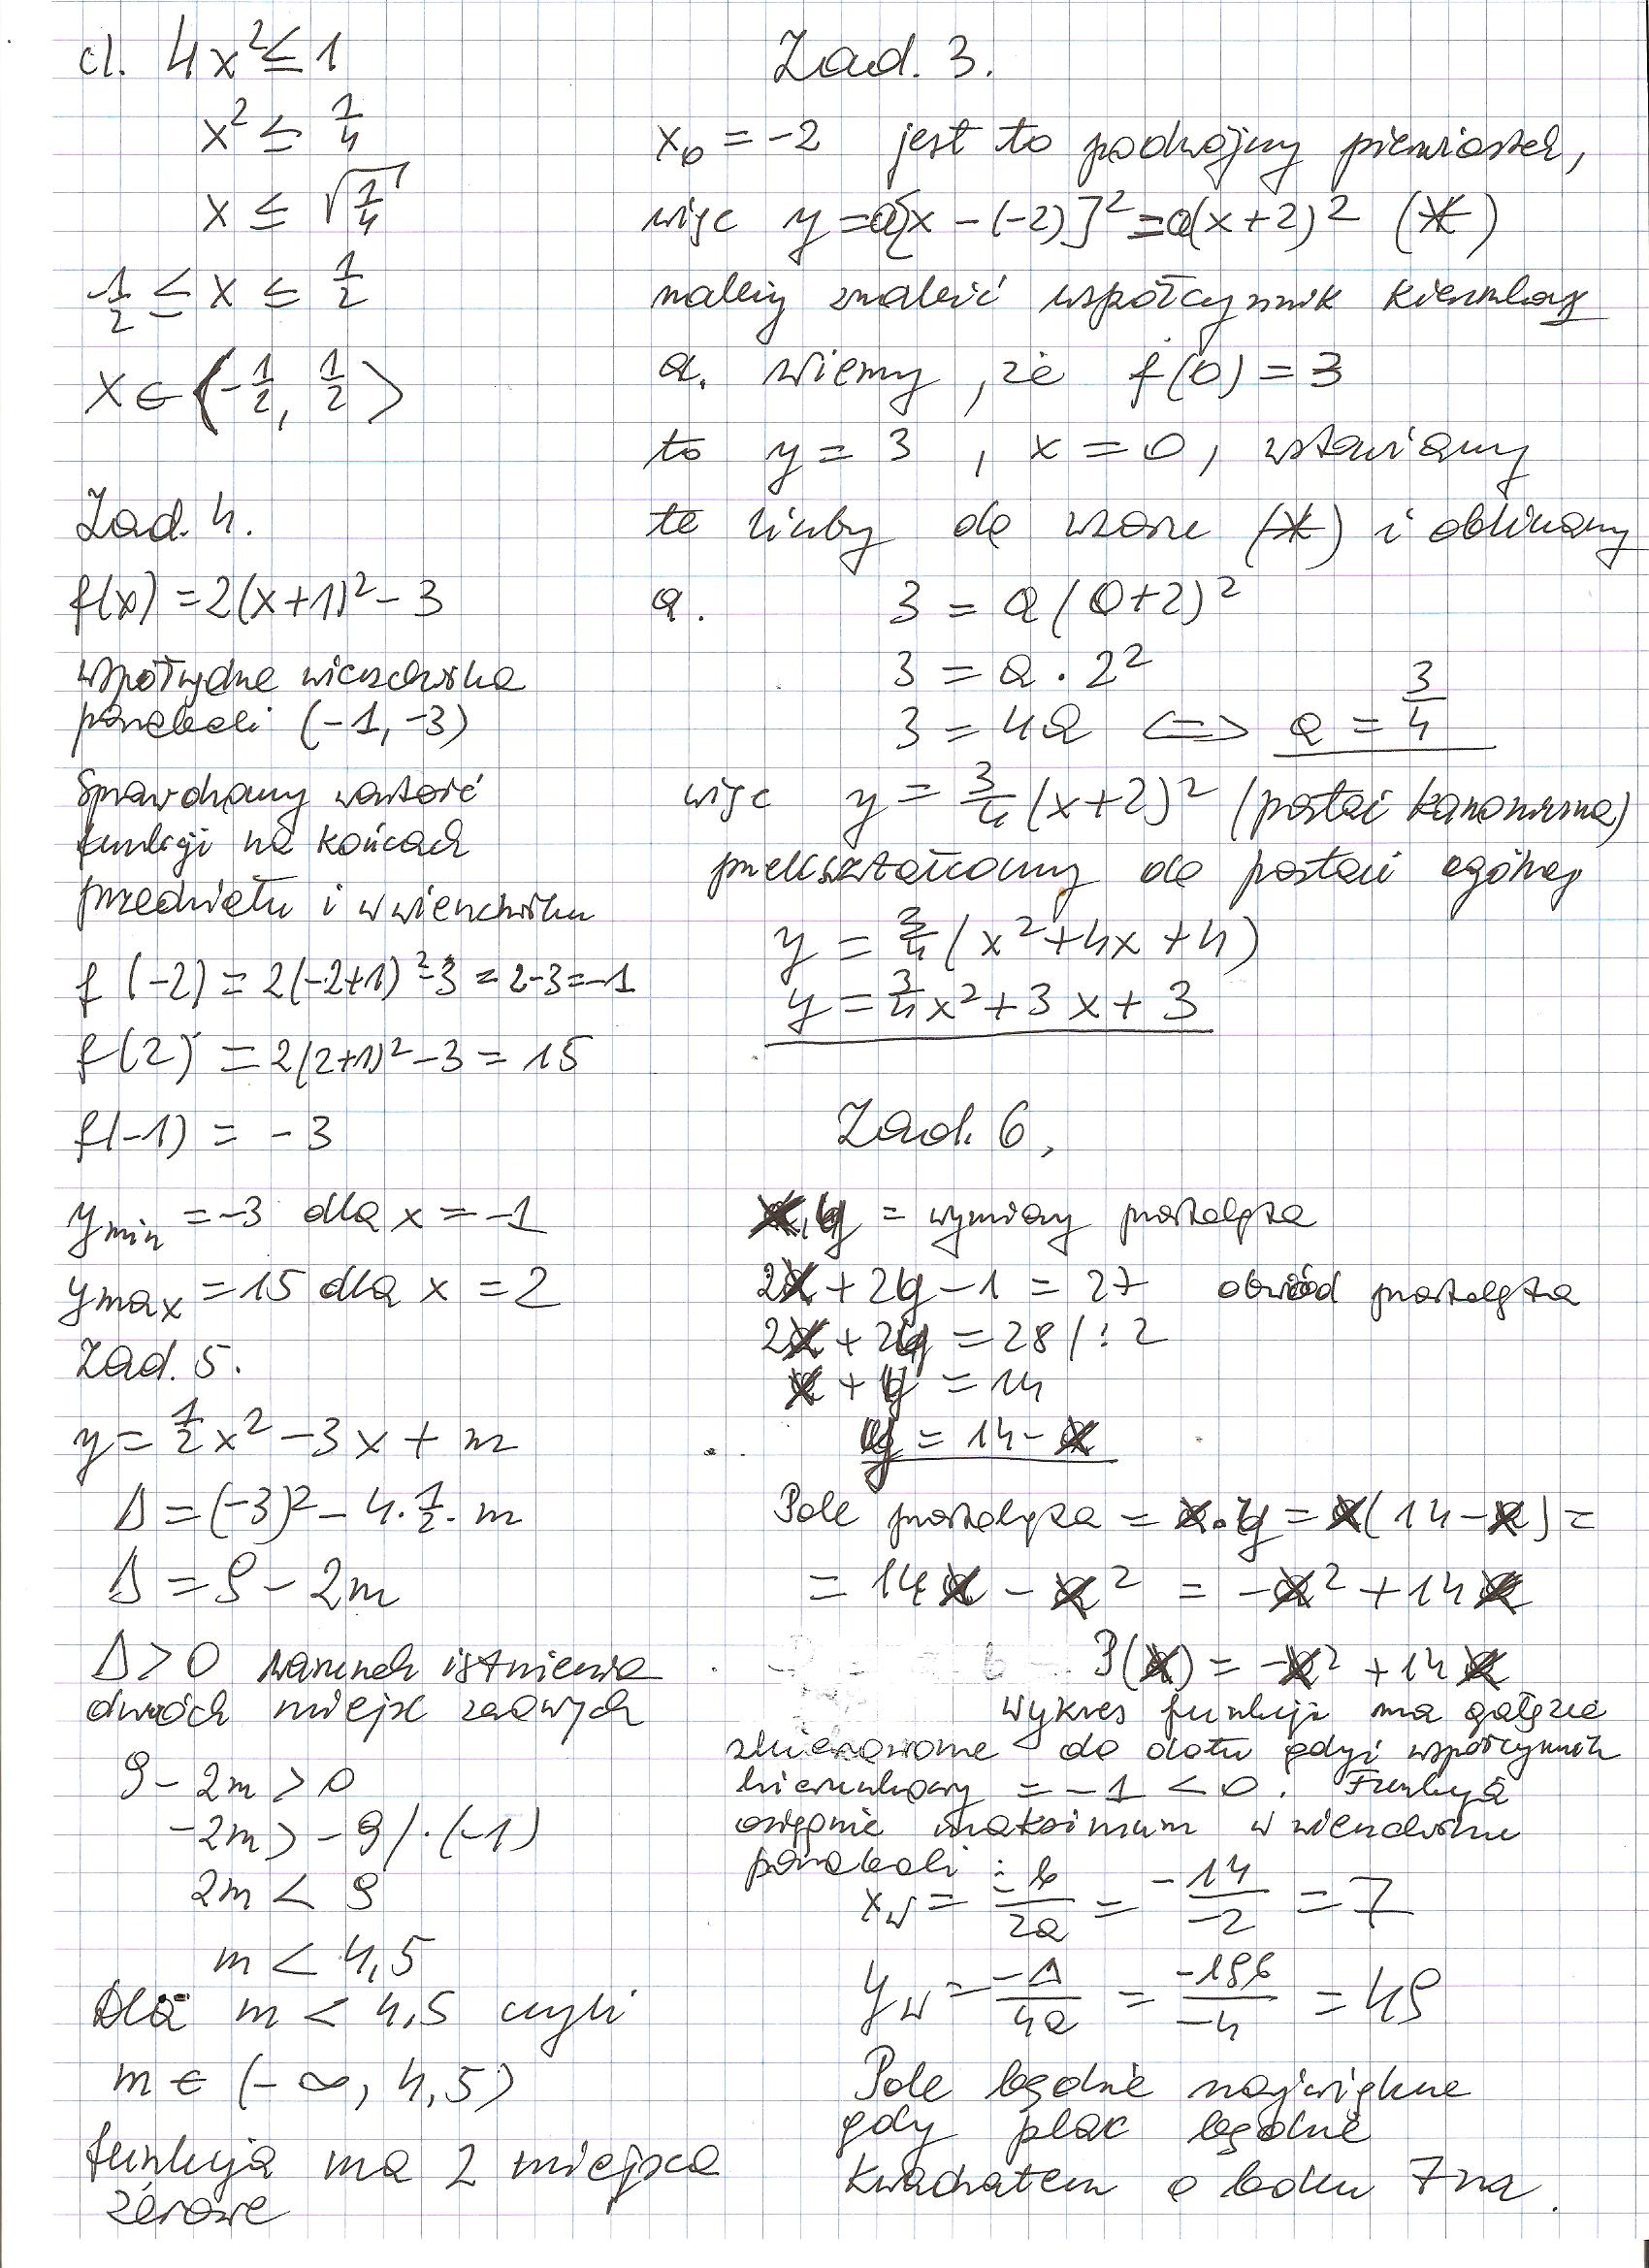 d. 4x² ≤ 1
x² ≤ 1/4
x ≤ √(1/4)
-1/2 ≤ x ≤ 1/2
x ∈ ⟨-1/2, 1/2⟩
Zad. 4.
f(x) = 2(x+1)² - 3
współrzędne wierzchołka
paraboli (-1, -3)
Sprawdzamy wartość
funkcji na końcach
przedziału i w wierzchołku
f(-2) = 2(-2+1)² - 3 = 2-3 = -1
f(2) = 2(2+1)² - 3 = 15
f(-1) = -3
y min = -3 dla x = -1
y max = 15 dla x = 2
Zad. 5.
y = 1/2 x² - 3x + m
Δ = (-3)² - 4 · 1/2 · m
Δ = 9 - 2m
Δ > 0 warunek istnienia
dwóch miejsc zerowych
9 - 2m > 0
-2m > -9 / · (-1)
2m < 9
m < 4,5
Dla m < 4,5 czyli
m ∈ (-∞, 4,5)
funkcja ma 2 miejsca
zerowe
Zad. 3.
x₀ = -2 jest to podwójny pierwiastek,
więc y = a[x - (-2)]² = a(x+2)² (*)
należy znaleźć współczynnik kierunkowy
a. wiemy, że f(0) = 3
to y = 3, x = 0, wstawiamy
te liczby do wzoru (*) i obliczamy
a. 3 = a(0+2)²
3 = a · 2²
3 = 4a ⟺ a = 3/4
więc y = 3/4 (x+2)² (postać kanoniczna)
przekształcamy do postaci ogólnej
y = 3/4 (x² + 4x + 4)
y = 3/4 x² + 3x + 3
Zad. 6.
x, y = wymiary prostokąta
2x + 2y - 1 = 27 obwód prostokąta
2x + 2y = 28 / : 2
x + y = 14
y = 14 - x
Pole prostokąta = x · y = x(14 - x) =
= 14x - x² = -x² + 14x
P(x) = -x² + 14x
wykres funkcji ma gałęzie
skierowane do dołu gdyż współczynnik
kierunkowy = -1 < 0. Funkcja
osiągnie maksimum w wierzchołku
paraboli :
x w = -b/2a = -14/-2 = 7
y w = -Δ/4a = -196/-4 = 49
Pole będzie największe
gdy plac będzie
kwadratem o boku 7m